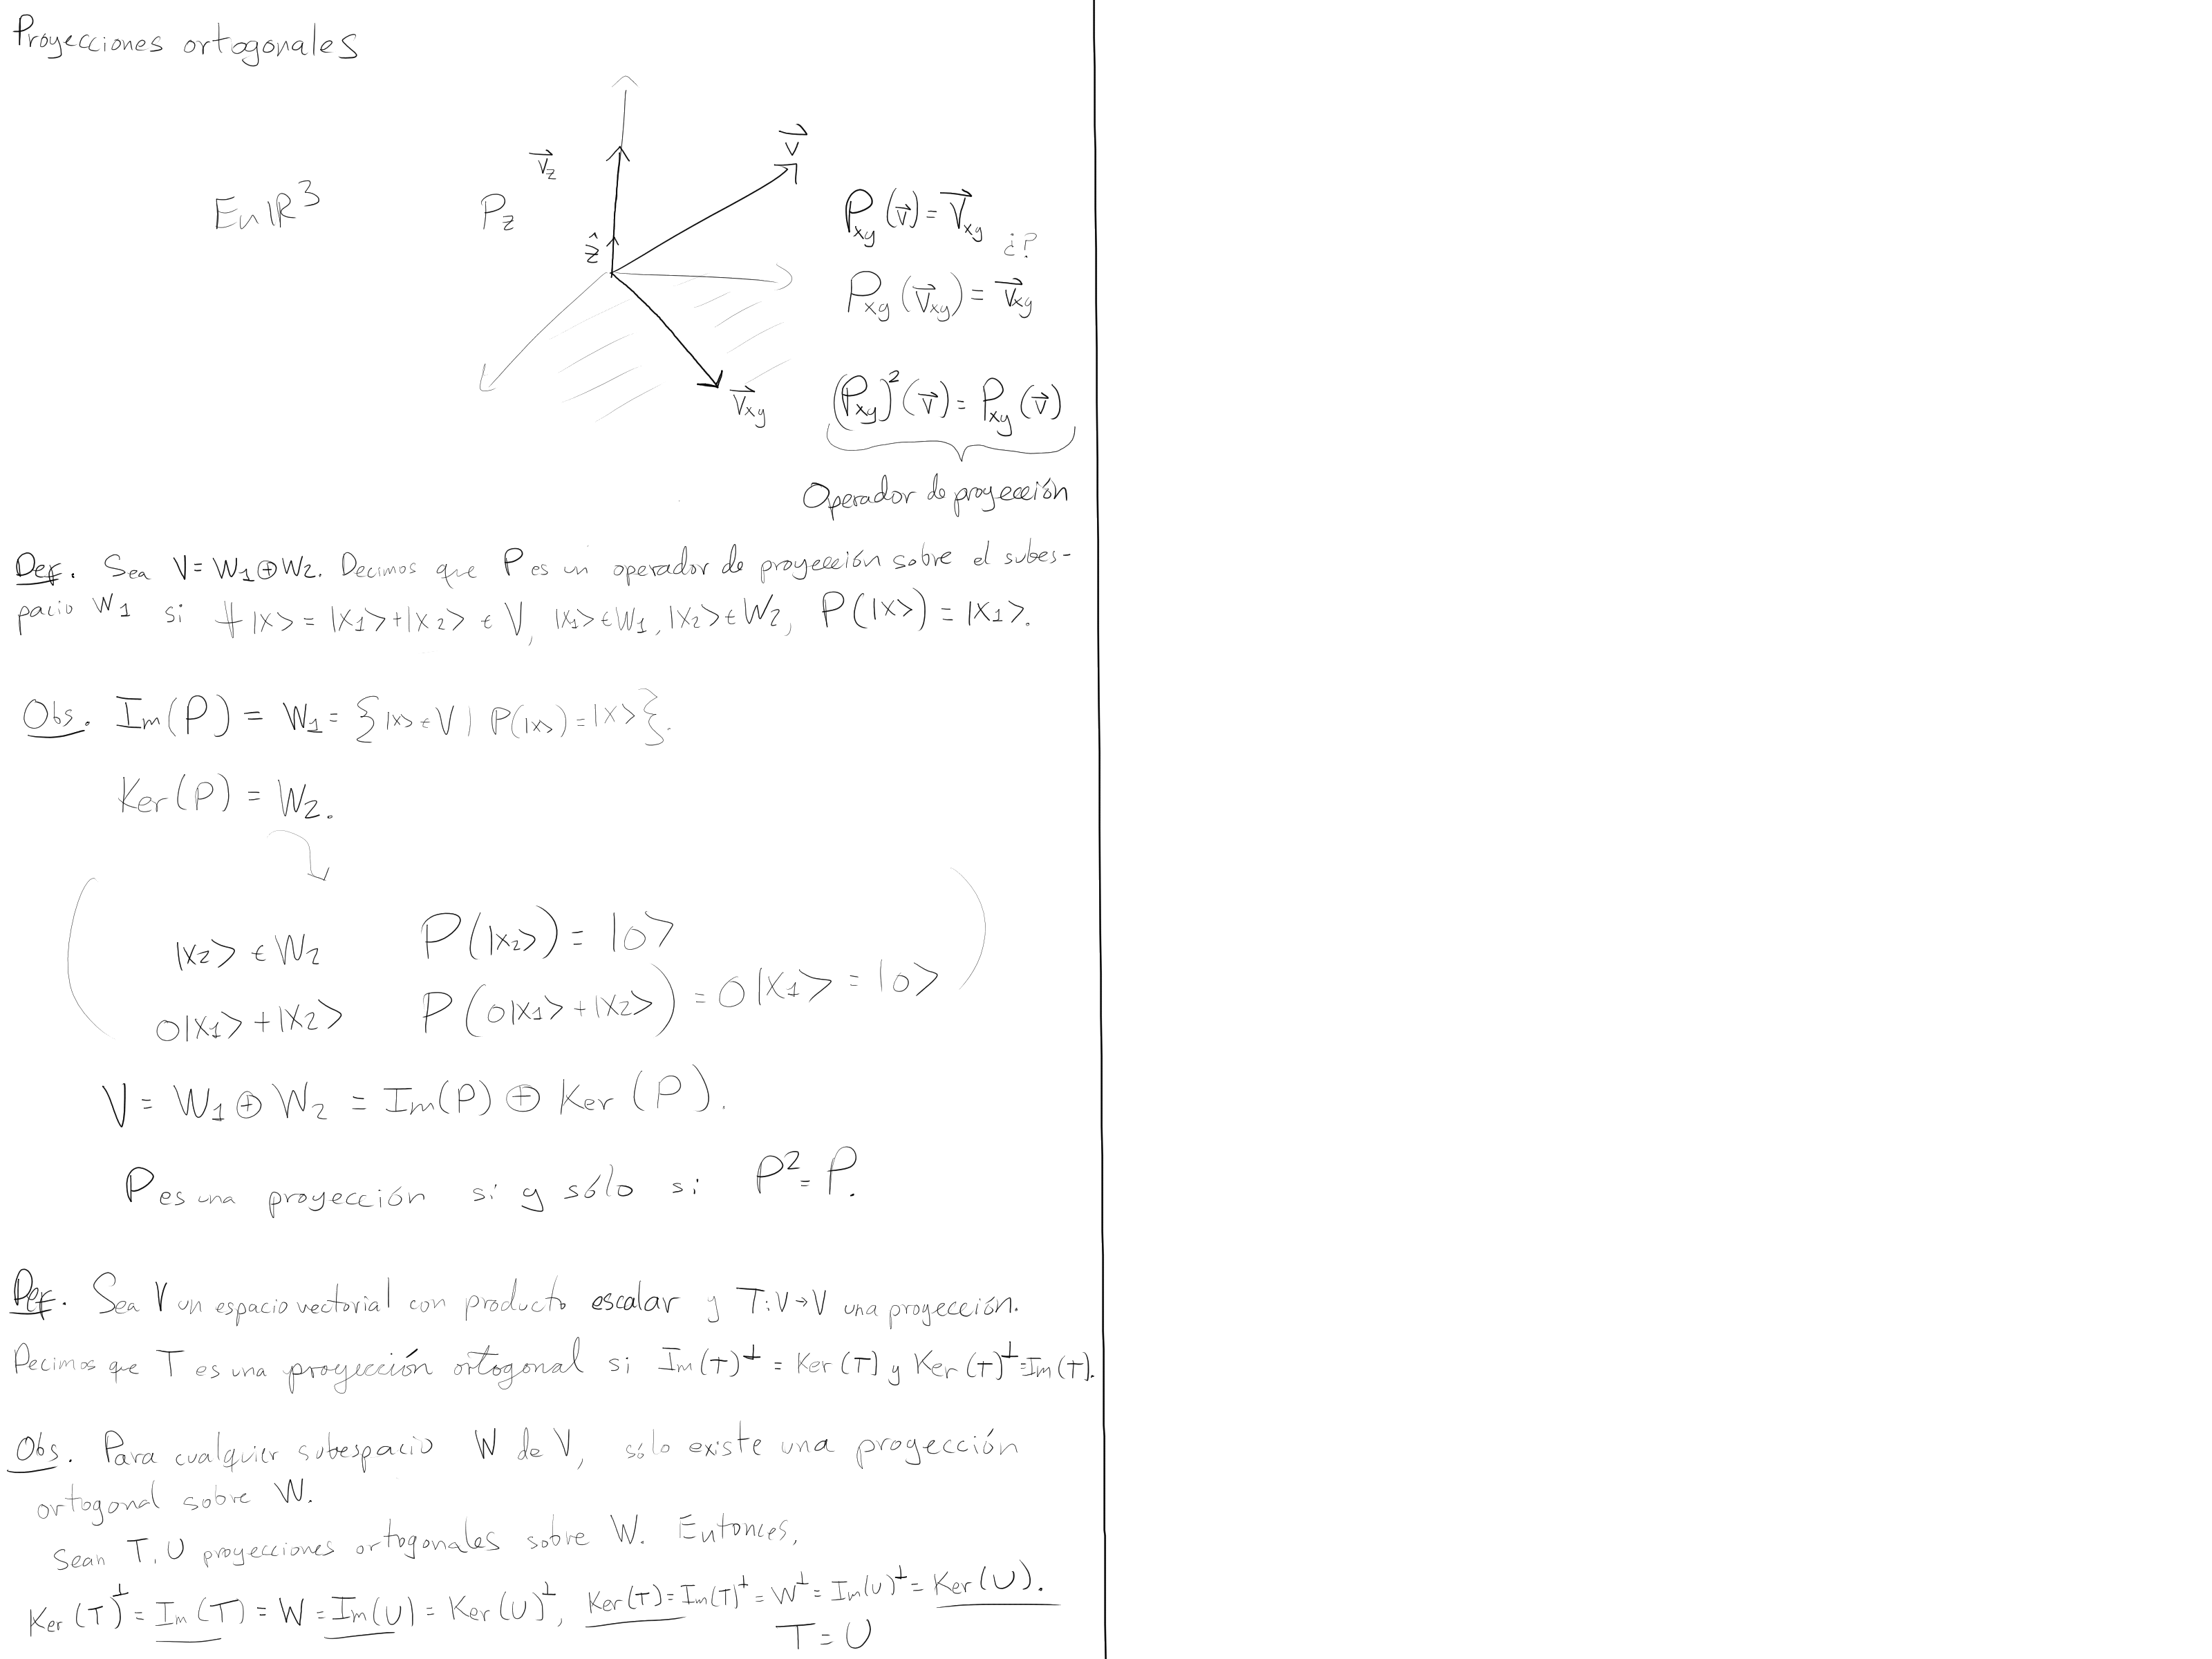 Proyecciones ortogonales
En ℝ³
P_z
\vec{v}_z
\hat{z}
\vec{v}
\vec{v}_{xy}
P_{xy}(\vec{v}) = \vec{v}_{xy} ¿?
P_{xy}(\vec{v}_{xy}) = \vec{v}_{xy}
(P_{xy})²(\vec{v}) = P_{xy}(\vec{v})
Operador de proyección
Def. Sea V = W₁⊕W₂. Decimos que P es un operador de proyección sobre el subes-
pacio W₁ si ∀ |x> = |x₁>+|x₂> ∈ V, |x₁>∈W₁, |x₂>∈W₂, P(|x>) = |x₁>.
Obs. Im(P) = W₁ = {|x>∈V | P(|x>)=|x>}.
Ker(P) = W₂.
|x₂> ∈ W₂ P(|x₂>) = |0>
0|x₁>+|x₂> P(0|x₁>+|x₂>) = 0|x₁> = |0>
V = W₁ ⊕ W₂ = Im(P) ⊕ Ker(P).
P es una proyección si y sólo si P² = P.
Def. Sea V un espacio vectorial con producto escalar y T:V→V una proyección.
Decimos que T es una proyección ortogonal si Im(T)^⊥ = Ker(T) y Ker(T)^⊥ = Im(T).
Obs. Para cualquier subespacio W de V, sólo existe una proyección
ortogonal sobre W.
Sean T, U proyecciones ortogonales sobre W. Entonces,
Ker(T)^⊥ = Im(T) = W = Im(U) = Ker(U)^⊥, Ker(T) = Im(T)^⊥ = W^⊥ = Im(U)^⊥ = Ker(U).
T = U